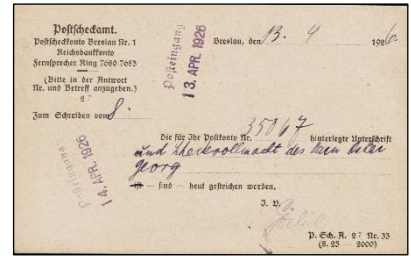 Postscheckamt.
Postscheckkonto Breslau Nr. 1
Reichsbankkonto
Fernsprecher Ring 7680-7683
(Bitte in der Antwort
Nr. und Betreff anzugeben.)
27
Posteingang
13. APR. 1926
Breslau, den 13. 4 1926
Zum Schreiben vom 8.
Posteingang
14. APR. 1926
Die für Ihr Postkonto Nr. 35067 hinterlegte Unterschrift
und Scheckvollmacht des Herrn
Georg
ist — sind — heut gestrichen worden.
J. V.
P. Sch. A. 27 Nr. 33
(8. 25 — 2000)